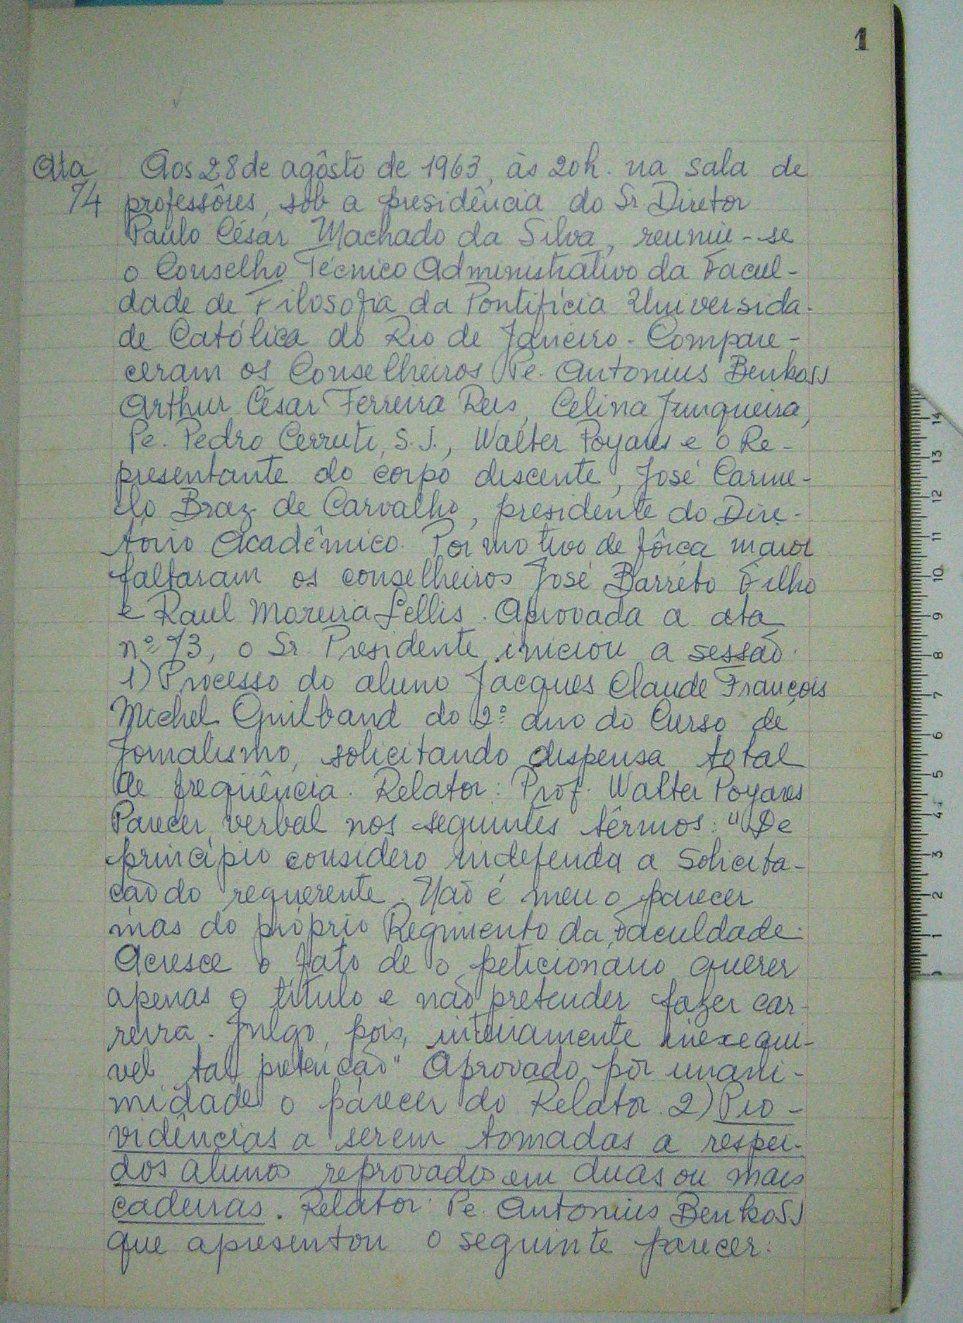 1
Ata Aos 28 de agôsto de 1963, às 20h. na sala de
74 professôres, sob a presidência do Sr Diretor
Paulo César Machado da Silva, reuniu-se
o Conselho Técnico Administrativo da Facul-
dade de Filosofia da Pontifícia Universida-
de Católica do Rio de Janeiro. Compare-
ceram os Conselheiros Pe. Antonius Benko SJ
Arthur César Ferreira Reis, Celina Junqueira,
Pe. Pedro Cerruti, S.J., Walter Poyares e o Re-
presentante do corpo discente, José Carme-
lo Braz de Carvalho, presidente do Dire-
tório Acadêmico. Por motivo de fôrça maior
faltaram os conselheiros José Barreto Filho
e Raul Moreira Lellis. Aprovada a ata
nº 73, o Sr. Presidente iniciou a sessão.
1) Processo do aluno Jacques Claude François
Michel Guilband do 2º ano do Curso de
Jornalismo, solicitando dispensa total
de freqüência. Relator: Prof. Walter Poyares
Parecer verbal nos seguintes têrmos: "De
princípio considero indefenda a solicita-
ção do requerente. Não é meu o parecer
mas do próprio Regimento da Faculdade.
Acresce o fato de o peticionário querer
apenas o título e não pretender fazer car-
reira. Julgo, pois, inteiramente inexequi-
vel tal pretenção" Aprovado por unani-
midade o parecer do Relator. 2) Pro-
vidências a serem tomadas a respei-
dos alunos reprovados em duas ou mais
cadeiras. Relator: Pe. Antonius Benko SJ
que apresentou o seguinte parecer:
14
13
12
11
10
9
8
7
6
5
4
3
2
1